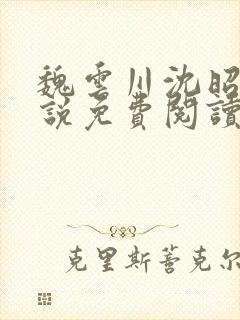 魏雲川沈昭
說免費閱讀
克里斯蒂克尔